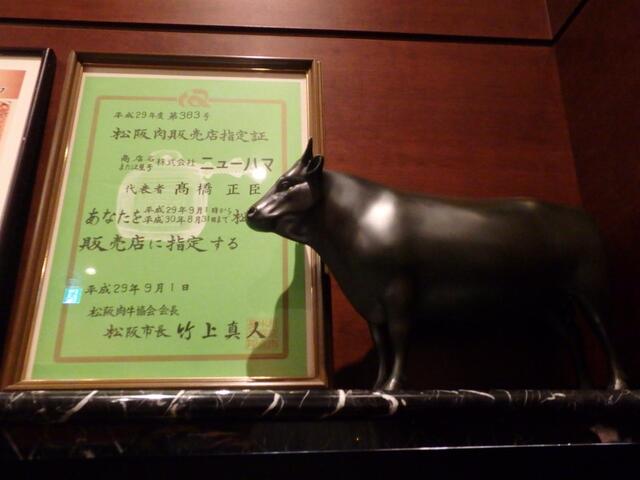 平成29年度 第383号
松阪肉販売店指定証
商店名
または屋号 株式会社 ニューハマ
代表者 髙橋正臣
あなたを 平成29年9月1日から
平成30年8月31日まで 松
販売店に指定する
平成29年9月1日
松阪肉牛協会会長
松阪市長 竹上真人